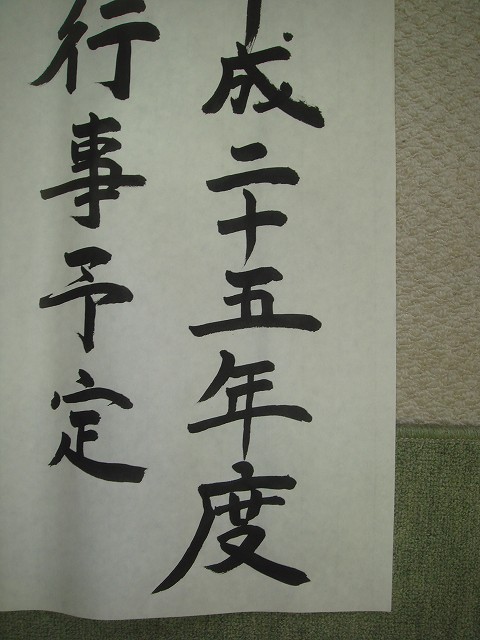 平成二十五年度
行事予定